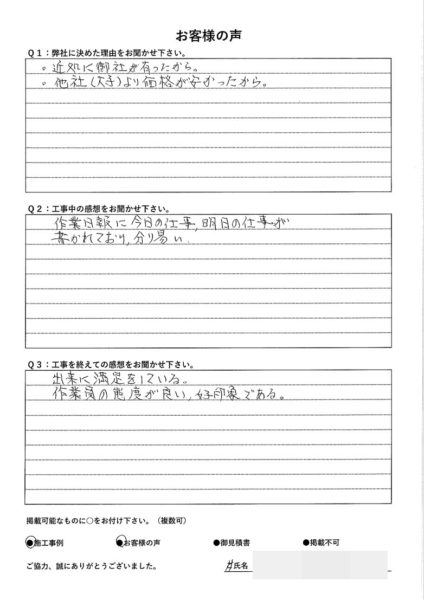 お客様の声
Q１：弊社に決めた理由をお聞かせ下さい。
・近処に御社が有ったから。
・他社(大手)より価格が安かったから。
Q２：工事中の感想をお聞かせ下さい。
作業日報に今日の仕事,明日の仕事が
書かれており,分り易い.
Q３：工事を終えての感想をお聞かせ下さい。
出来に満足をしている。
作業員の態度が良い,好印象である。
掲載可能なものに○をお付け下さい。（複数可）
●施工事例 ●お客様の声 ●御見積書 ●掲載不可
ご協力、誠にありがとうございました。 氏名